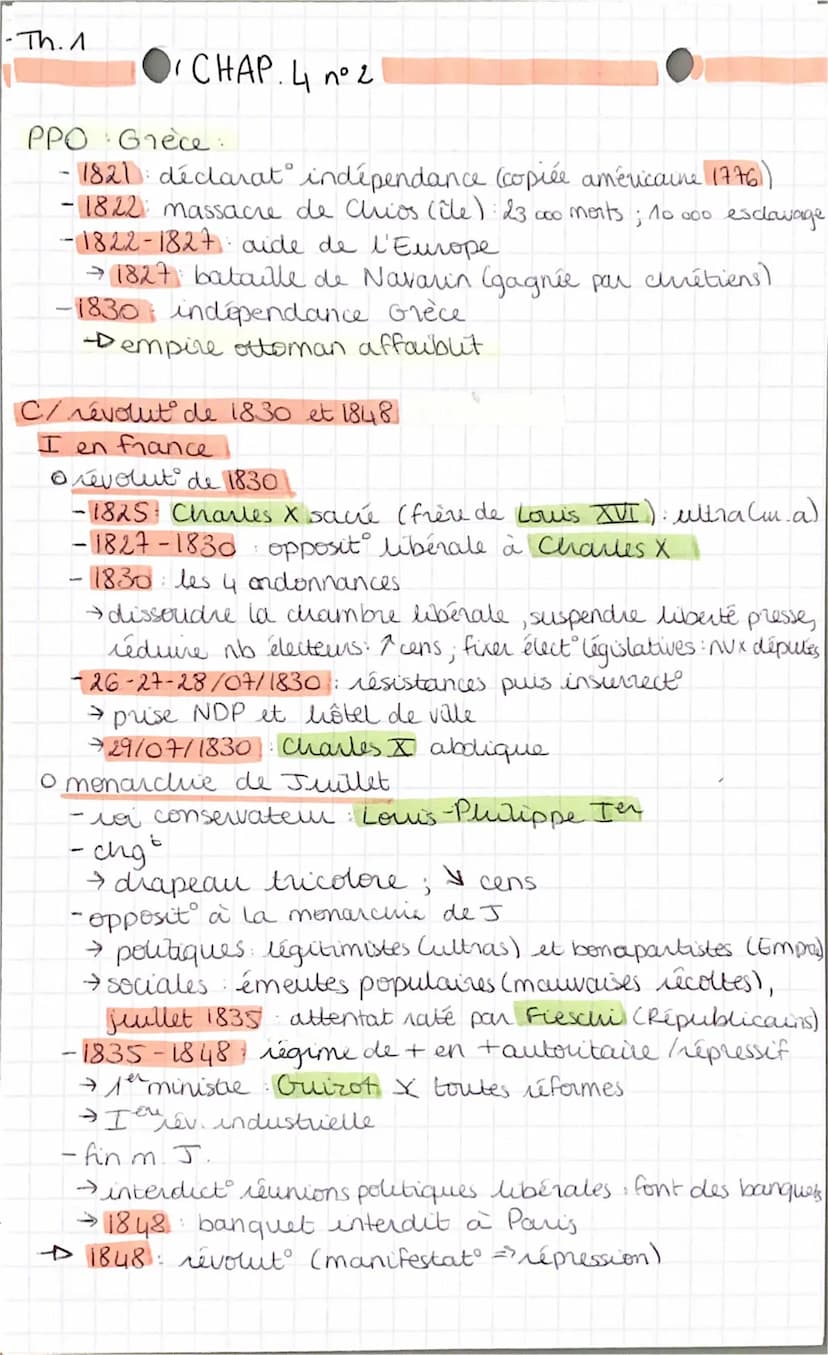 - Th. 1
CHAP. 4 n° 2
PPO : Grèce :
- 1821 : déclarat° indépendance (copiée américaine 1776)
- 1822 : massacre de Chios (île) : 23 000 morts ; 10 000 esclavage
- 1822-1827 : aide de l'Europe
→ 1827 : bataille de Navarin (gagnée par chrétiens)
- 1830 : indépendance Grèce
→ empire ottoman affaiblit
C/ révolut° de 1830 et 1848
I en france
o révolut° de 1830
- 1825 : Charles X sacré (frère de Louis XVI) : ultra (m.a)
- 1827-1830 : opposit° libérale à Charles X
- 1830 : les 4 ordonnances
→ dissoudre la chambre libérale, suspendre liberté presse,
réduire nb électeurs : ↑ cens ; fixer élect° législatives : nvx députés
- 26-27-28/07/1830 : résistances puis insurrect°
→ prise NDP et hôtel de ville
→ 29/07/1830 : Charles X abdique
o monarchie de Juillet
- roi conservateur : Louis-Philippe Ier
- chgt
→ drapeau tricolore ; ↘ cens
- opposit° à la monarchie de J
→ politiques : légitimistes (ultras) et bonapartistes (Empire)
→ sociales : émeutes populaires (mauvaises récoltes),
juillet 1835 : attentat raté par Fieschi (Républicains)
- 1835-1848 : régime de + en + autoritaire / répressif
→ 1er ministre : Guizot X toutes réformes
→ Ière rév. industrielle
- fin m. J.
→ interdict° réunions politiques libérales : font des banquets
→ 1848 : banquet interdit à Paris
→ 1848 : révolut° (manifestat° => répression)